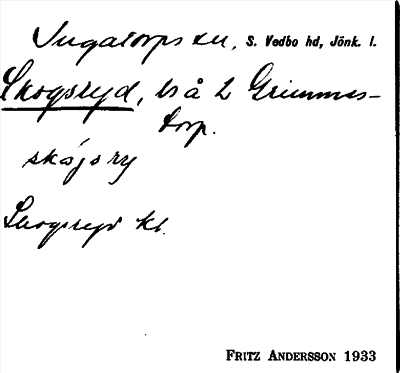 Ingatorps sn, S. Vedbo hd, Jönk. l.
Skogsryd, ls å 2 Grimmas-
torp.
skójsry
Skogsryd kl.
FRITZ ANDERSSON 1933